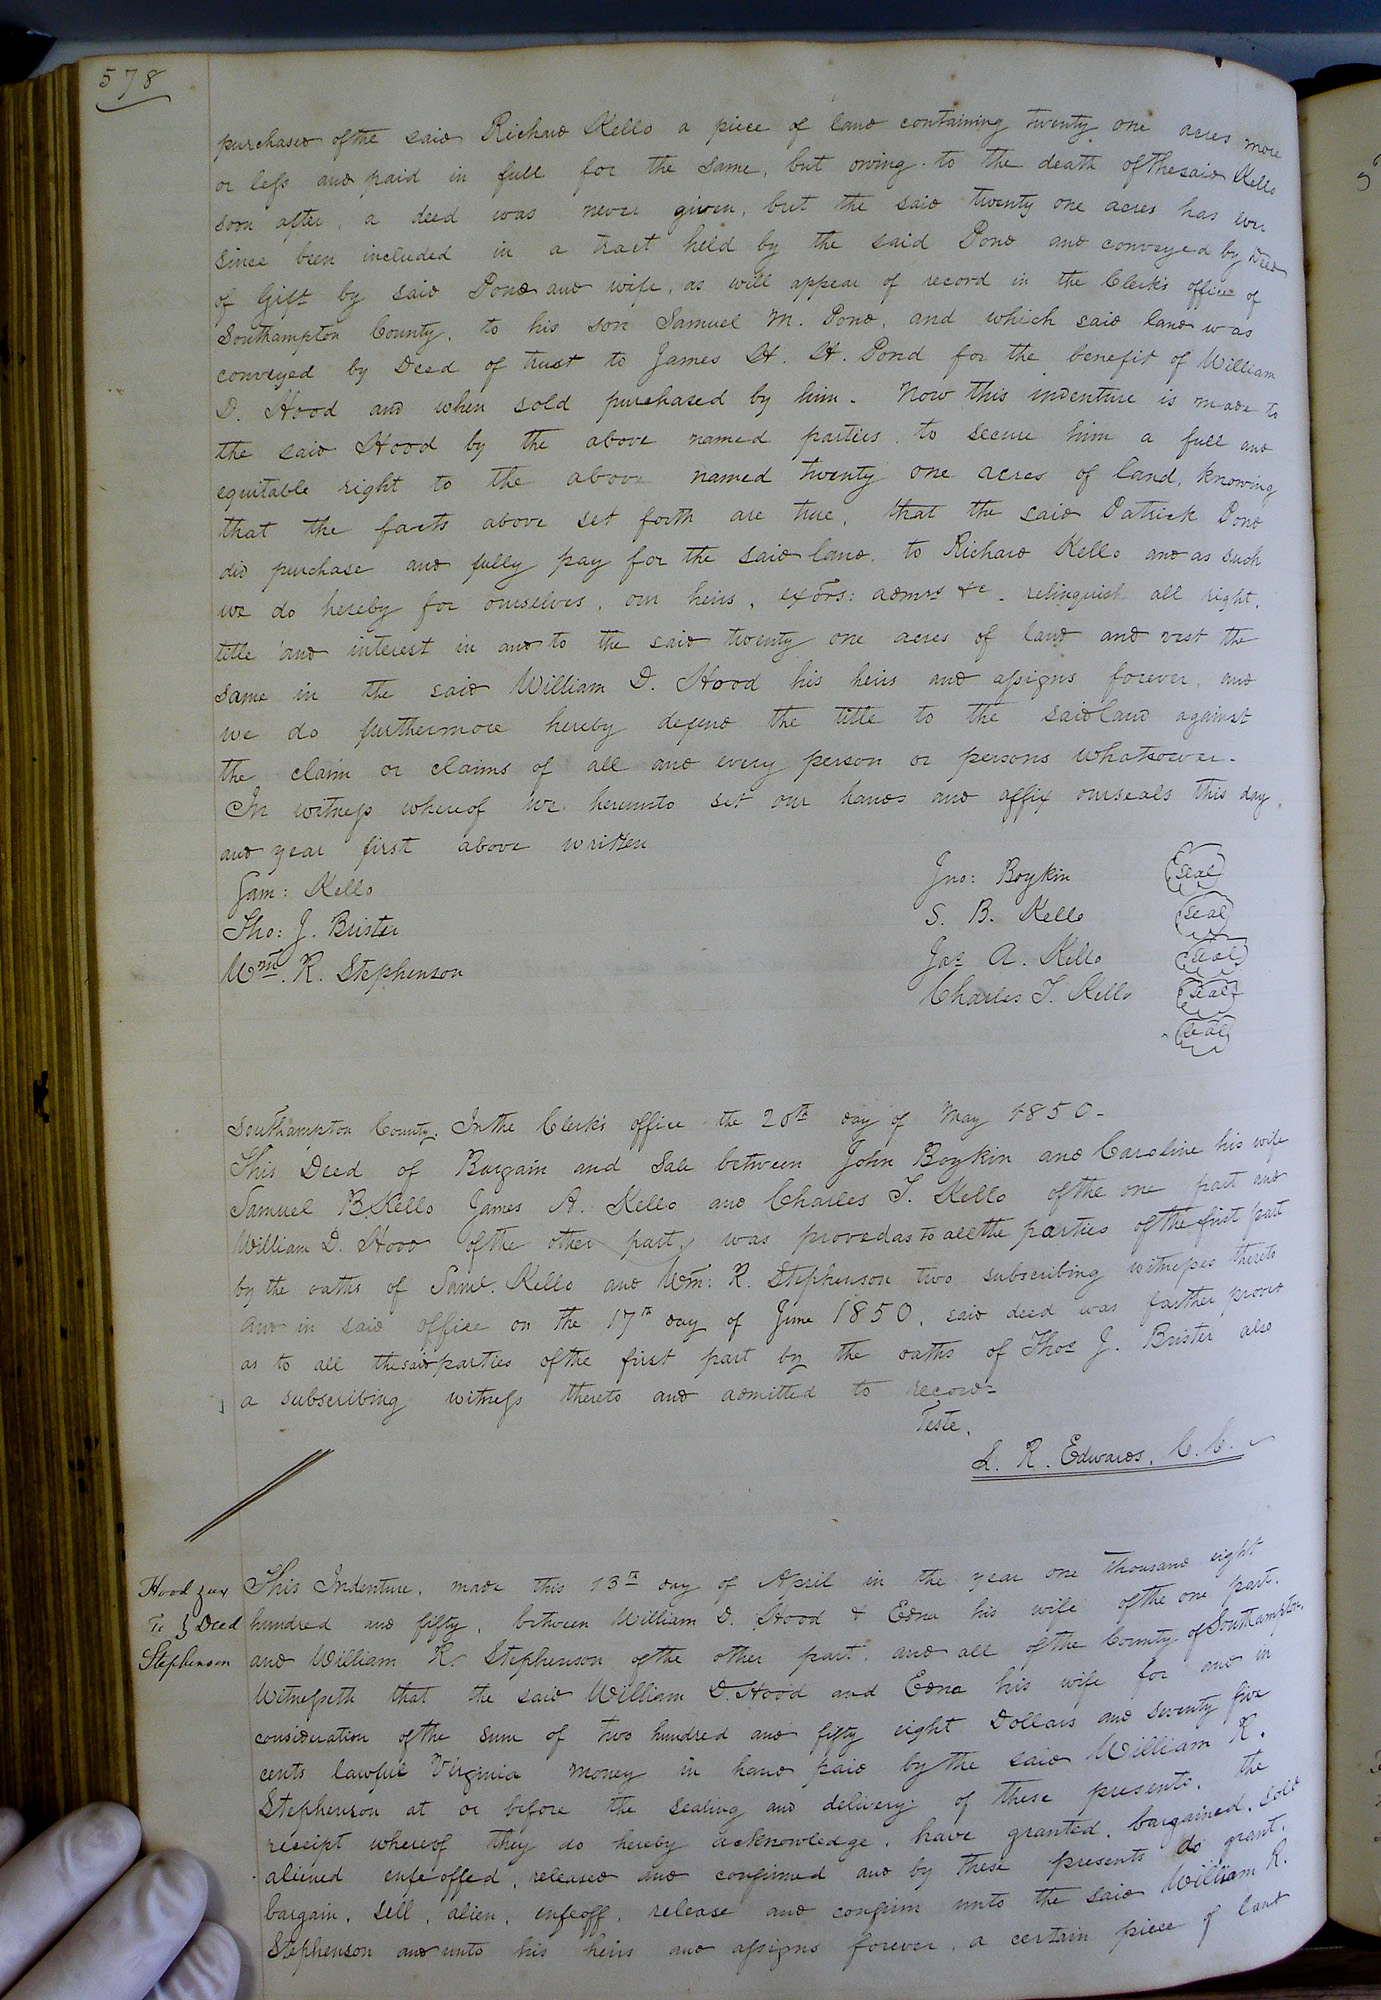 578
purchased of the said Richard Kello a piece of land containing twenty one acres more
or less and paid in full for the same, but owing to the death of the said Kello
soon after, a deed was never given, but the said twenty one acres has ever
since been included in a tract held by the said Pond and conveyed by Deed
of Gift by said Pond and wife, as will appear of record in the Clerk's office of
Southampton County, to his son Samuel M. Pond, and which said land was
conveyed by Deed of trust to James H. H. Pond for the benefit of William
D. Hood and when sold purchased by him. Now this indenture is made to
the said Hood by the above named parties, to secure him a full and
equitable right to the above named twenty one acres of land, knowing
that the facts above set forth are true, that the said Patrick Pond
did purchase and fully pay for the said land, to Richard Kello and as such
we do hereby for ourselves, our heirs, exôrs: admrs &c. relinquish all right,
title and interest in and to the said twenty one acres of land and vest the
same in the said William D. Hood his heirs and assigns forever, and
we do furthermore hereby defend the title to the said land against
the claim or claims of all and every person or persons whatsoever.
In witness whereof we hereunto set our hands and affix our seals this day,
and year first above written
Sam: Kello
Tho: J. Brister
Wm. R. Stephenson
Jno: Boykin seal
S. B. Kello seal
Jas A. Kello seal
Charles T. Kello seal
seal
Southampton County. In the Clerk's office the 20th day of May 1850-
This Deed of Bargain and Sale between John Boykin and Caroline his wife
Samuel B. Kello James A. Kello and Charles T. Kello of the one part and
William D. Hood of the other part, was proved as to all the parties of the first part
by the oaths of Saml. Kello and Wm: R. Stephenson two subscribing witnesses thereto
and in said office on the 17th day of June 1850, said deed was farther proved
as to all the said parties of the first part by the oaths of Thos J. Brister also
a subscribing witness thereto and admitted to record=
Teste,
L. R. Edwards, C. C.
Hood & ux
To } Deed
Stephenson
This Indenture, made this 13th day of April in the year one thousand eight
hundred and fifty, between William D. Hood & Edna his wife of the one part,
and William R. Stephenson of the other part, and all of the County of Southampton,
Witnesseth that the said William D. Hood and Edna his wife for and in
consideration of the sum of two hundred and fifty eight Dollars and seventy five
cents lawful Virginia money in hand paid by the said William R.
Stephenson at or before the sealing and delivery of these presents, the
receipt whereof they do hereby acknowledge, have granted, bargained, sold
aliened enfeoffed, released and confirmed and by these presents do grant,
bargain, sell, alien, enfeoff, release and confirm unto the said William R.
Stephenson and unto his heirs and assigns forever, a certain piece of land